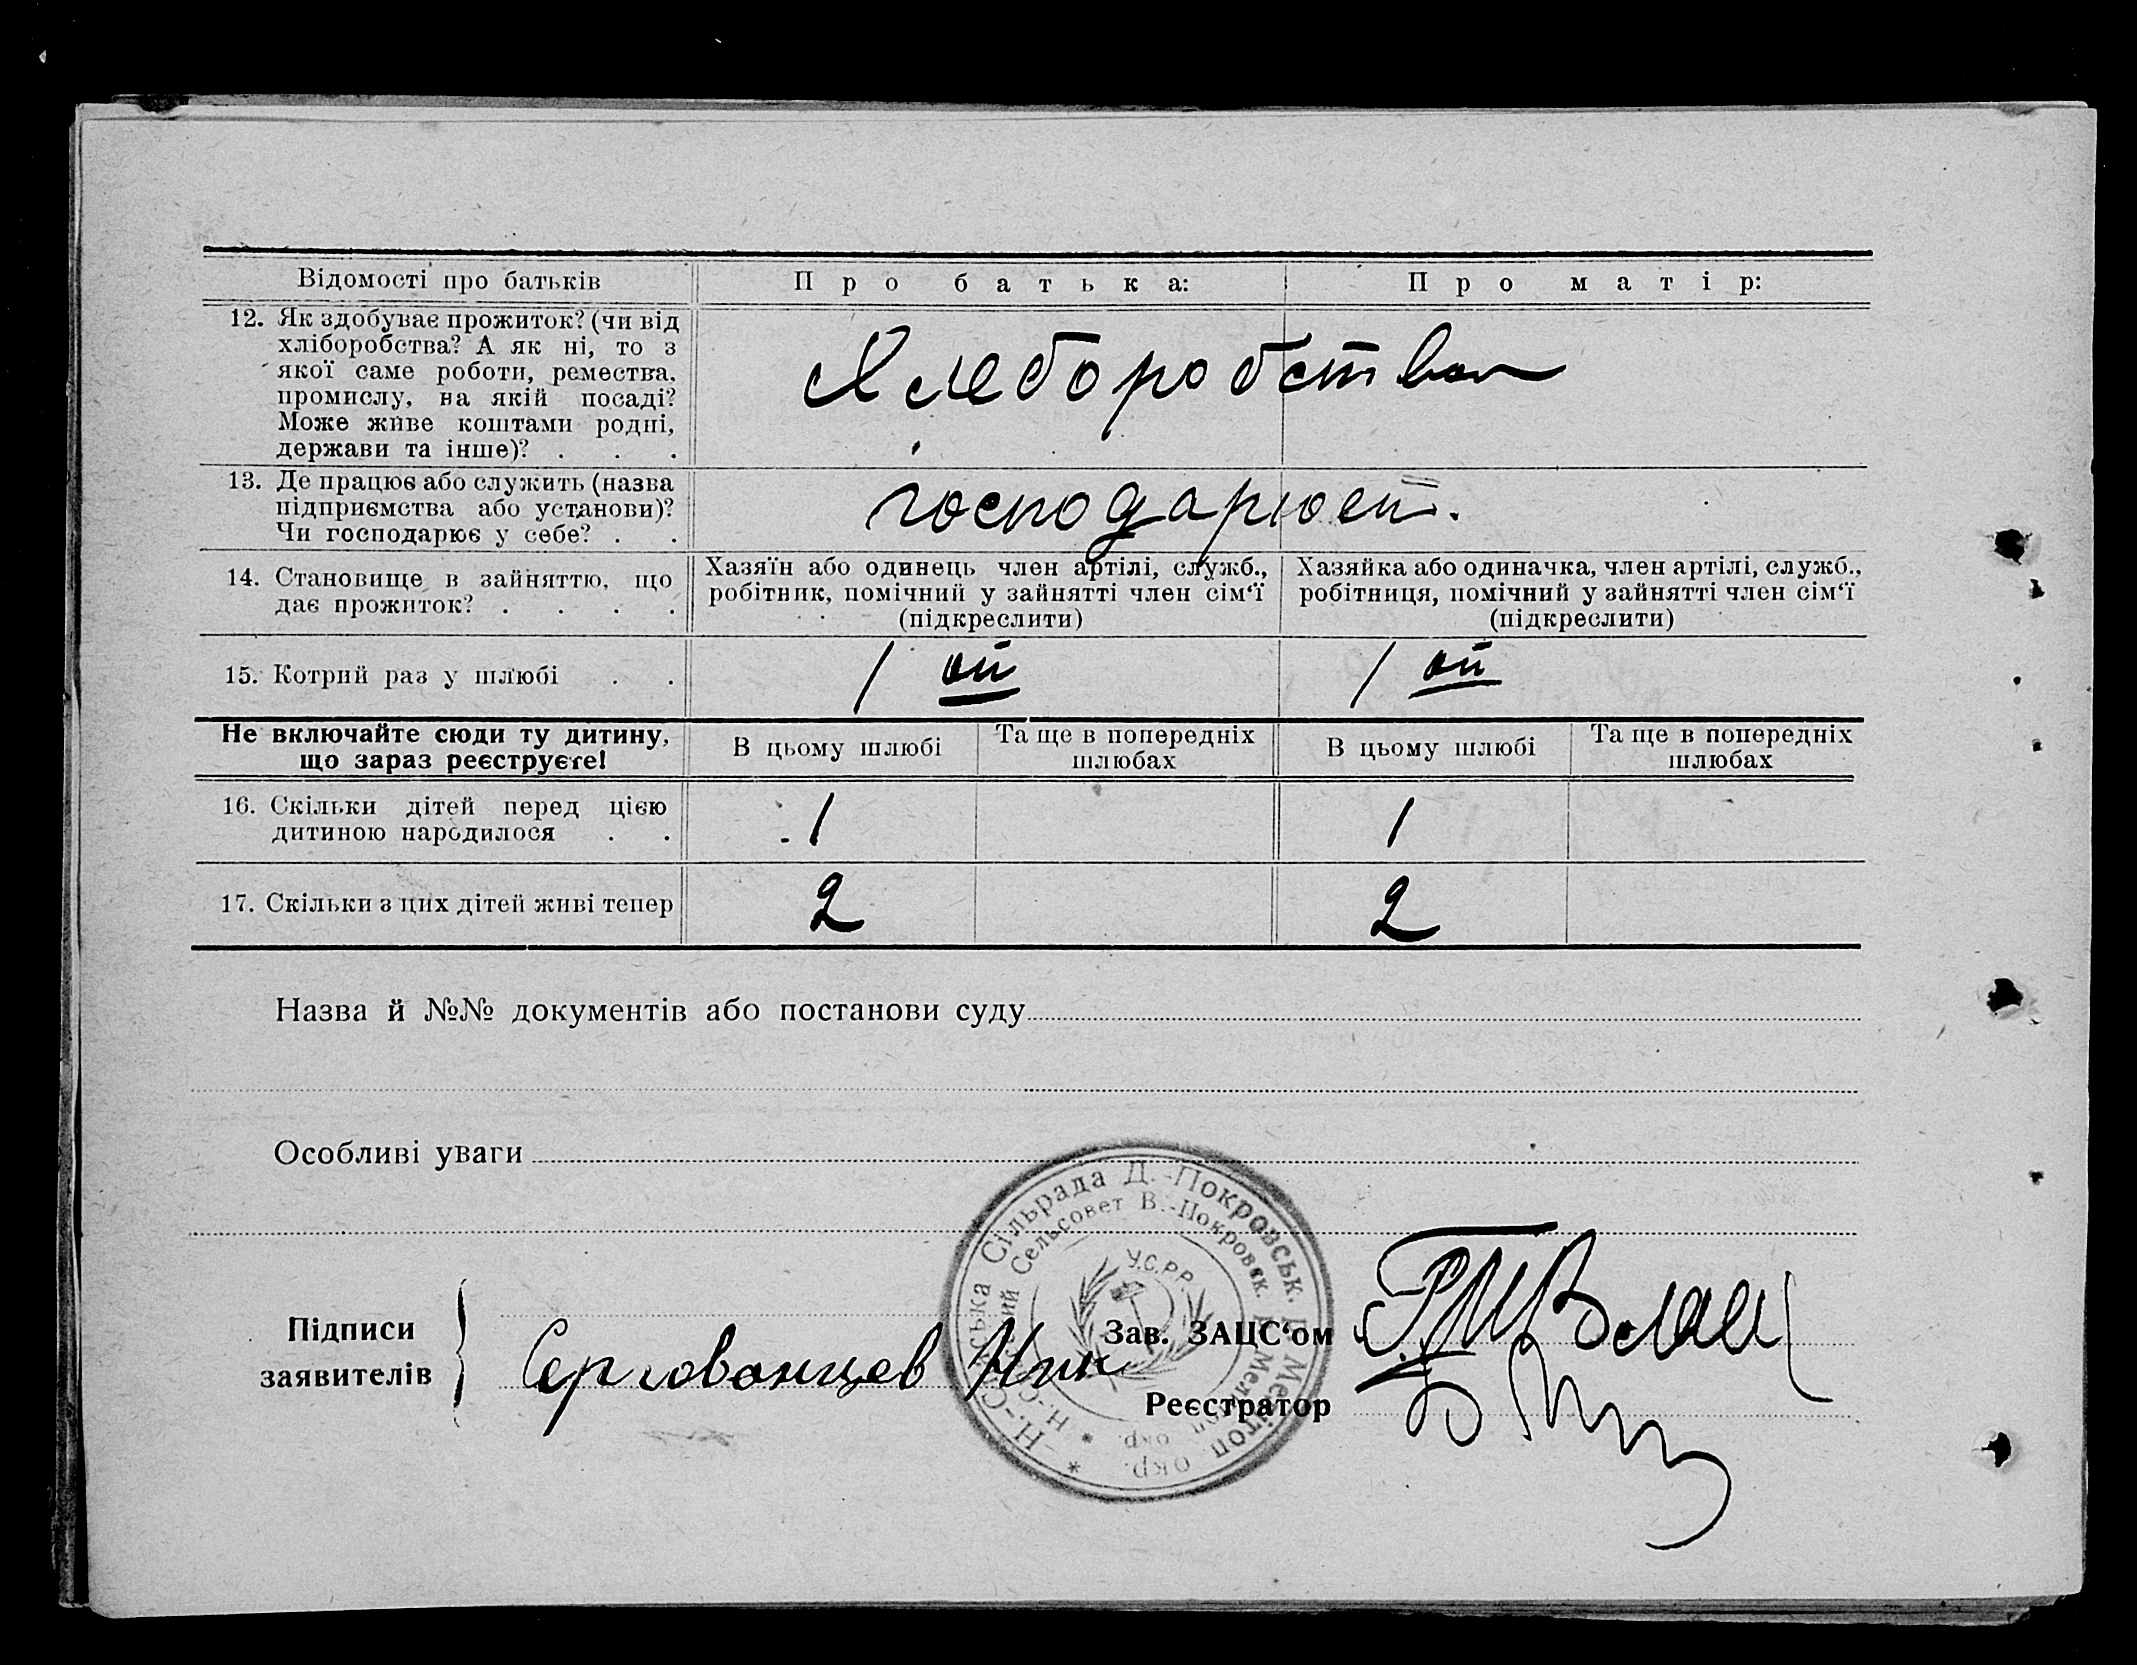 Відомості про батьків Про батька: Про матір:
12. Як здобуває прожиток? (чи від
хліборобства? А як ні, то з
якої саме роботи, ремества,
промислу, на якій посаді?
Може живе коштами родні,
держави та інше)? . . .
Хлеборобства
13. Де працює або служить (назва
підприємства або установи)?
Чи господарює у себе? . .
господарюет.
14. Становище в зайняттю, що
дає прожиток? . . . .
Хазяїн або одинець член артілі, служб.,
робітник, помічний у зайнятті член сім‘ї
(підкреслити)
Хазяйка або одиначка, член артілі, служб.,
робітниця, помічний у зайнятті член сім‘ї
(підкреслити)
15. Котрий раз у шлюбі . . 1 ой 1 ой
Не включайте сюди ту дитину,
що зараз реєструєте!
В цьому шлюбі
Та ще в попередніх
шлюбах
В цьому шлюбі
Та ще в попередніх
шлюбах
16. Скільки дітей перед цією
дитиною народилося . .
1 1
17. Скільки з цих дітей живі тепер 2 2
Назва й №№ документів або постанови суду
Особливі уваги
Сільрада Д.-Покровськ.
Сельсовет В.-Покровск.
У.С.Р.Р.
окр.
окр.
Підписи
заявителів
Ник
Зав. ЗАЦС‘ом
Реєстратор